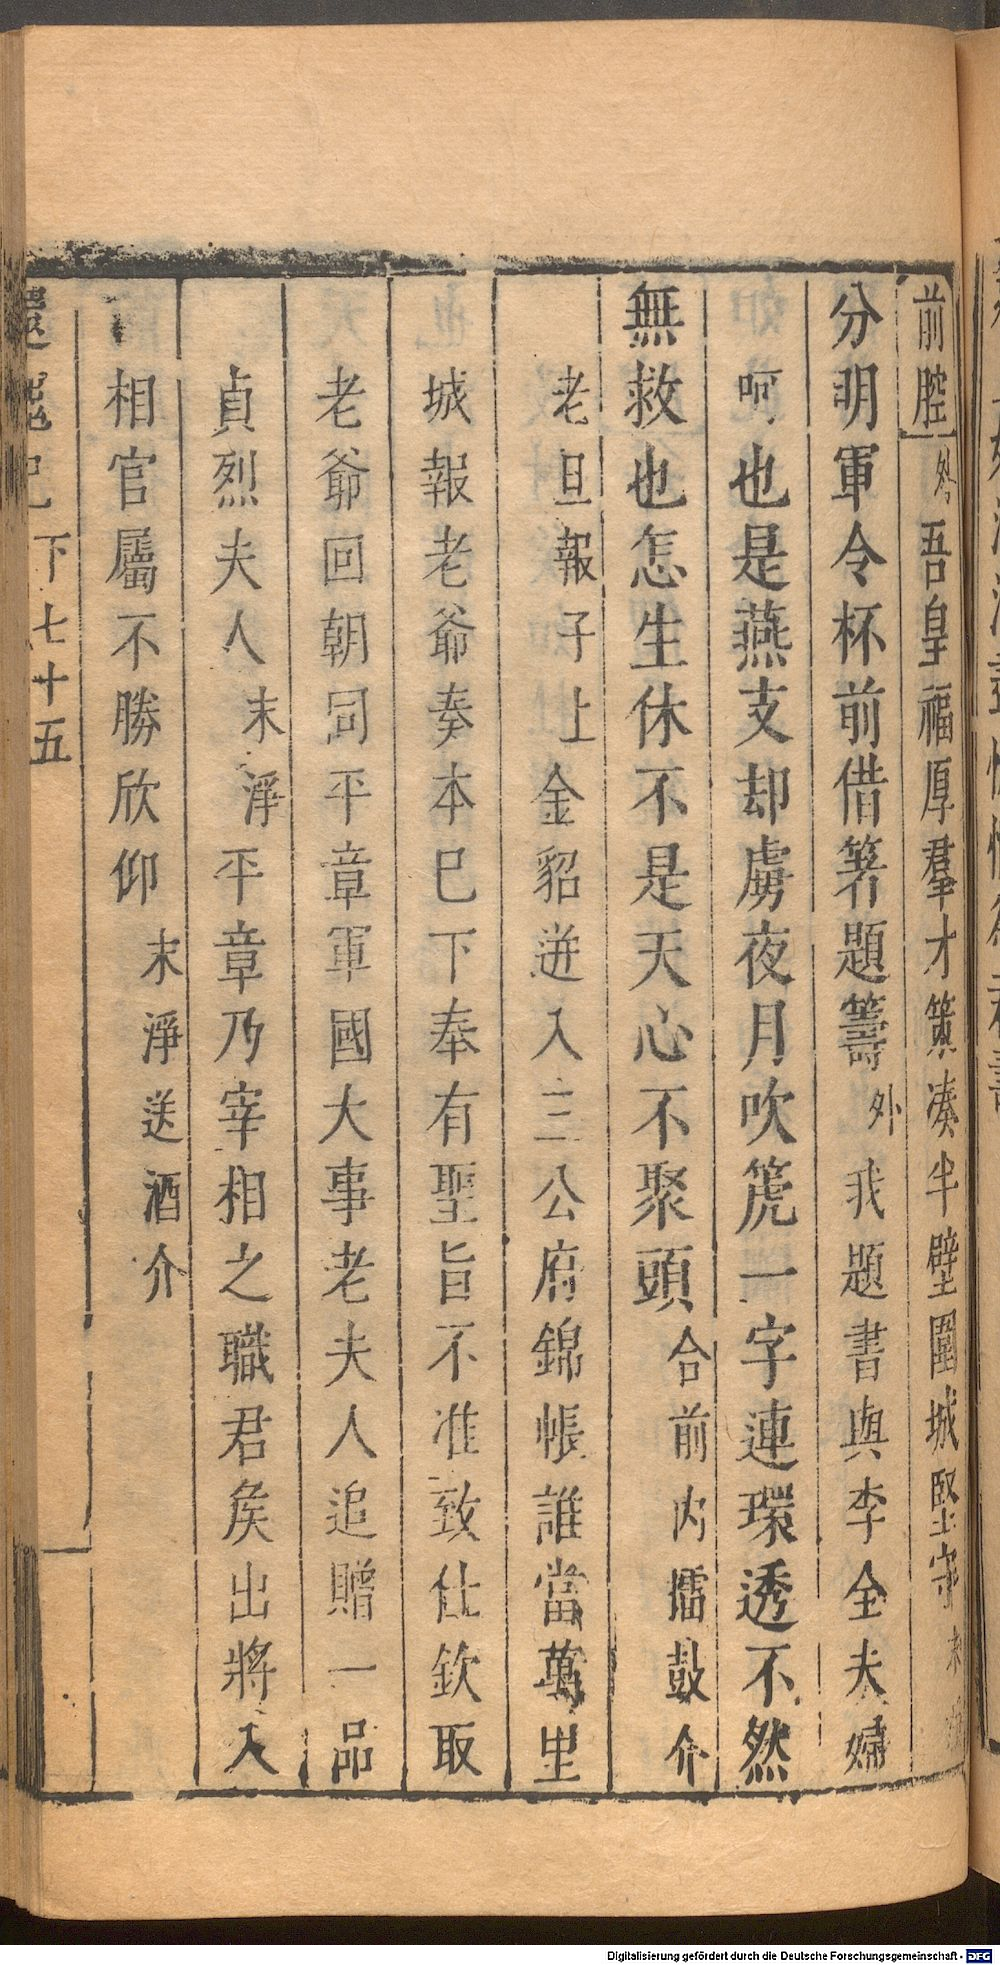 前腔外吾皇福厚羣才策凑半壁圍城堅守末
分明軍令杯前借箸題籌外我題書與李全夫婦
呵也是燕支却虜夜月吹篪一字連環透不然
無救也怎生休不是天心不聚頭合前內擂鼓介
老旦報子上金貂迸入三公府錦帳誰當萬里
城報老爺奏本已下奉有聖旨不准致仕欽取
老爺回朝同平章軍國大事老夫人追贈一品
貞烈夫人末淨平章乃宰相之職君侯出將入
相官屬不勝欣仰末淨送酒介
還魂記 下七十五
Digitalisierung gefördert durch die Deutsche Forschungsgemeinschaft - DFG